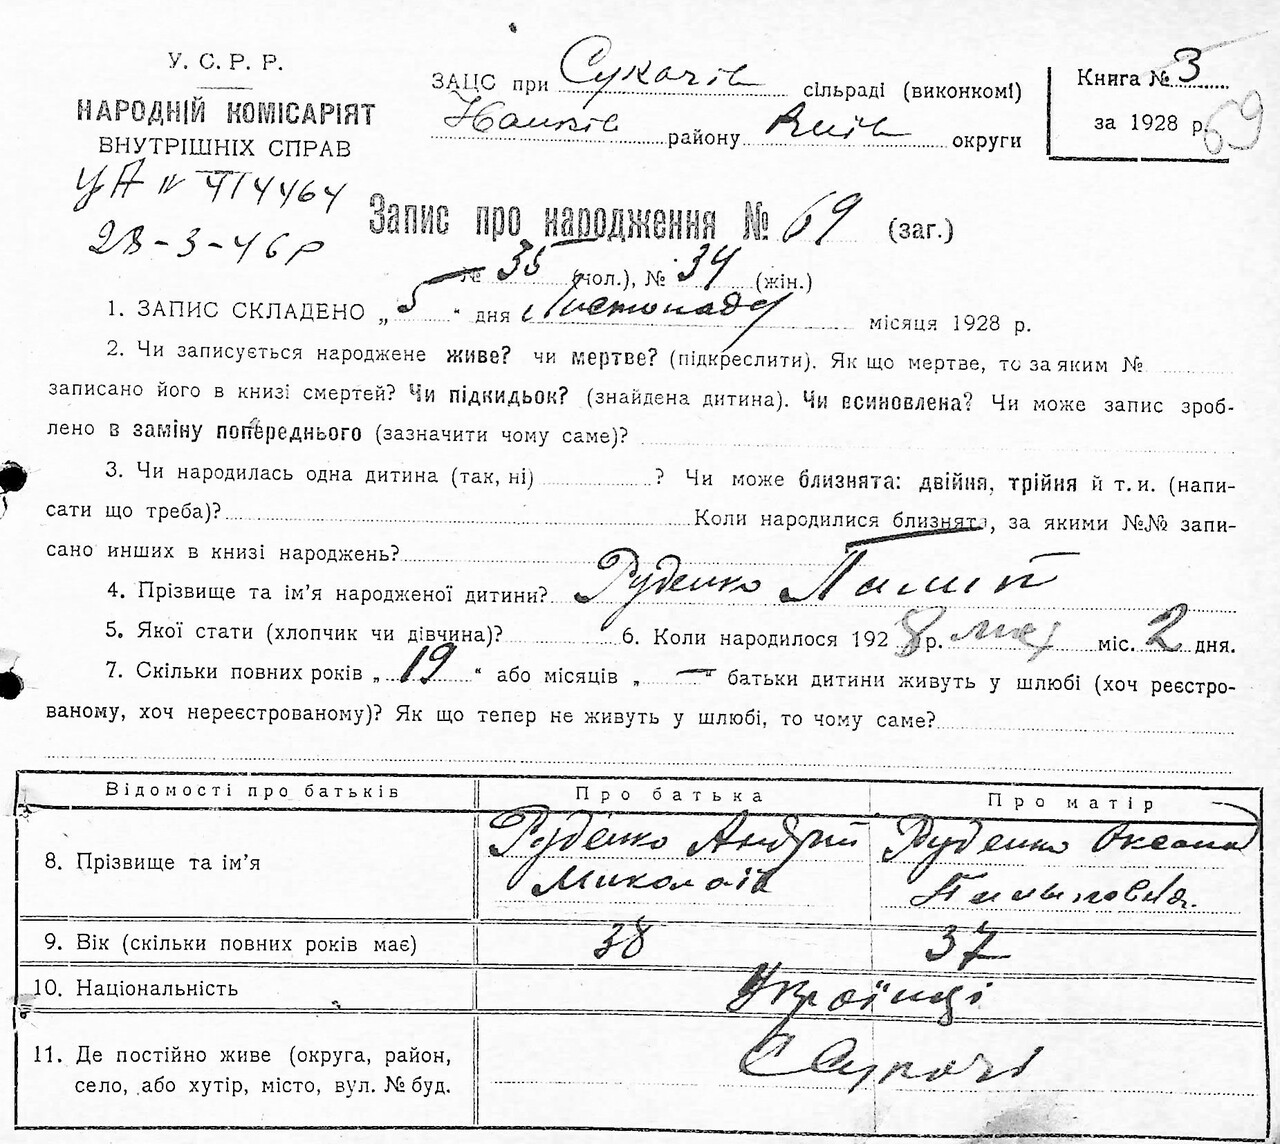 У. С. Р. Р.
НАРОДНІЙ КОМІСАРІЯТ
ВНУТРІШНІХ СПРАВ
28-3-46 р
ЗАЦС при Сукачів сільраді (виконкомі)
району Київ округи
Книга № 3
за 1928 р.
69
Запис про народження № 69 (заг.)
№ 35 (чол.), № 34 (жін.)
1. ЗАПИС СКЛАДЕНО „ 5 “ дня Листопаду місяця 1928 р.
2. Чи записується народжене живе? чи мертве? (підкреслити). Як що мертве, то за яким №
записано його в книзі смертей? Чи підкидьок? (знайдена дитина). Чи всиновлена? Чи може запис зроб-
лено в заміну попереднього (зазначити чому саме)?
3. Чи народилась одна дитина (так, ні) ? Чи може близнята: двійня, трійня й т. и. (напи-
сати що треба)? Коли народилися близнята, за якими №№ запи-
сано инших в книзі народжень?
4. Прізвище та ім’я народженої дитини? Руденко
5. Якої стати (хлопчик чи дівчина)? 6. Коли народилося 1928 р. міс. 2 дня.
7. Скільки повних років „ 19 “ або місяців „ — “ батьки дитини живуть у шлюбі (хоч реєстро-
ваному, хоч нереєстрованому)? Як що тепер не живуть у шлюбі, то чому саме?
Відомості про батьків Про батька Про матір
8. Прізвище та ім’я Руденко Андрій Руденко Оксана
9. Вік (скільки повних років має) 38 37
10. Національність Українці
11. Де постійно живе (округа, район,
село, або хутір, місто, вул. № буд. С Сукачі